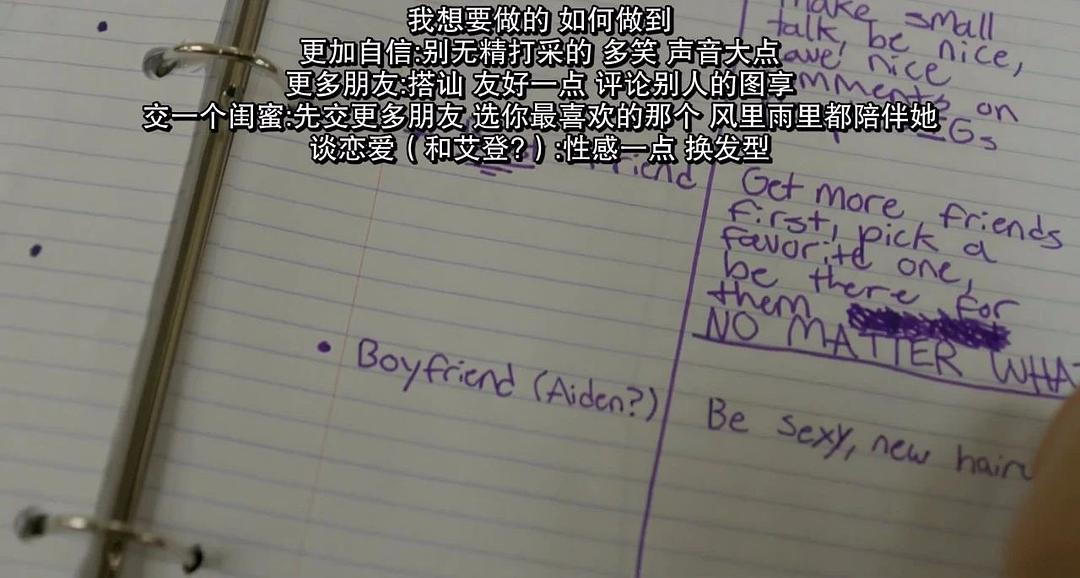 我想要做的 如何做到
更加自信:别无精打采的 多笑 声音大点
更多朋友:搭讪 友好一点 评论别人的图享
交一个闺蜜:先交更多朋友 选你最喜欢的那个 风里雨里都陪伴她
谈恋爱（和艾登?）:性感一点 换发型
make small
talk, be nice,
nice
on
friend
Get more friends
first, pick a
favorite one,
be there for
them
NO MATTER
• Boyfriend (Aiden?)
Be sexy, new